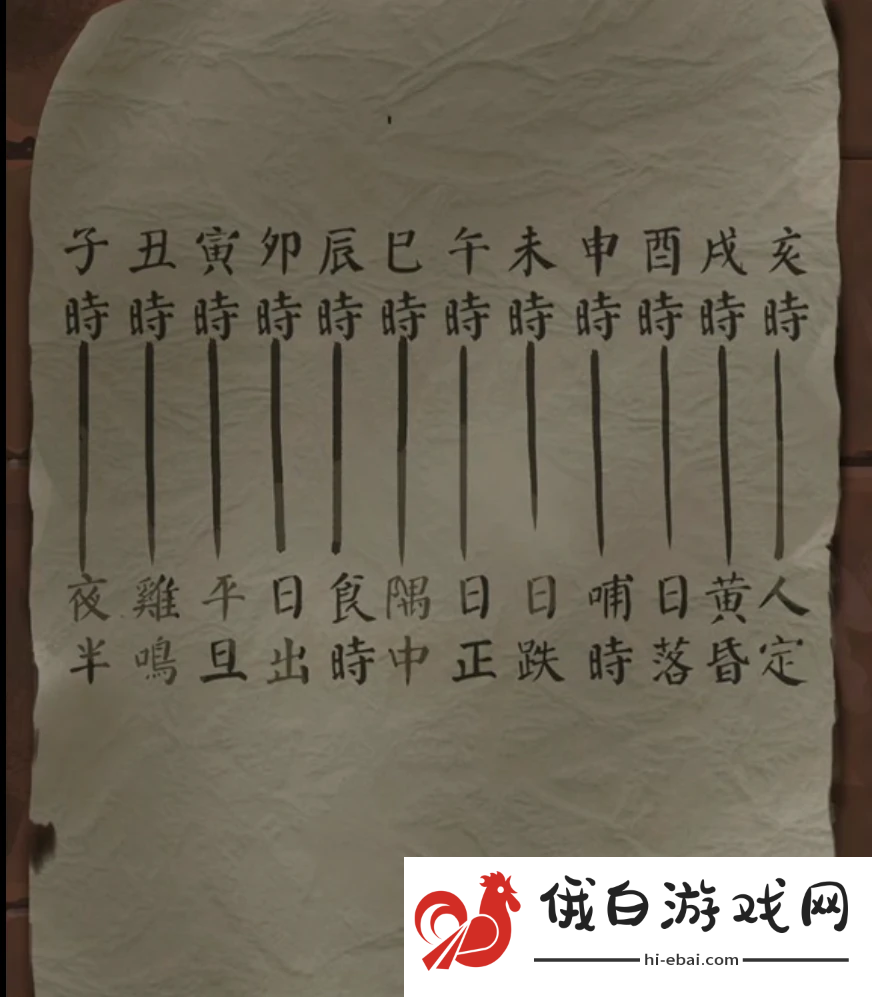 子時 夜半
丑時 雞鳴
寅時 平旦
卯時 日出
辰時 食時
巳時 隅中
午時 日正
未時 日跌
申時 哺時
酉時 日落
戌時 黄昏
亥時 人定
俄白游戏网
hi-ebai.com